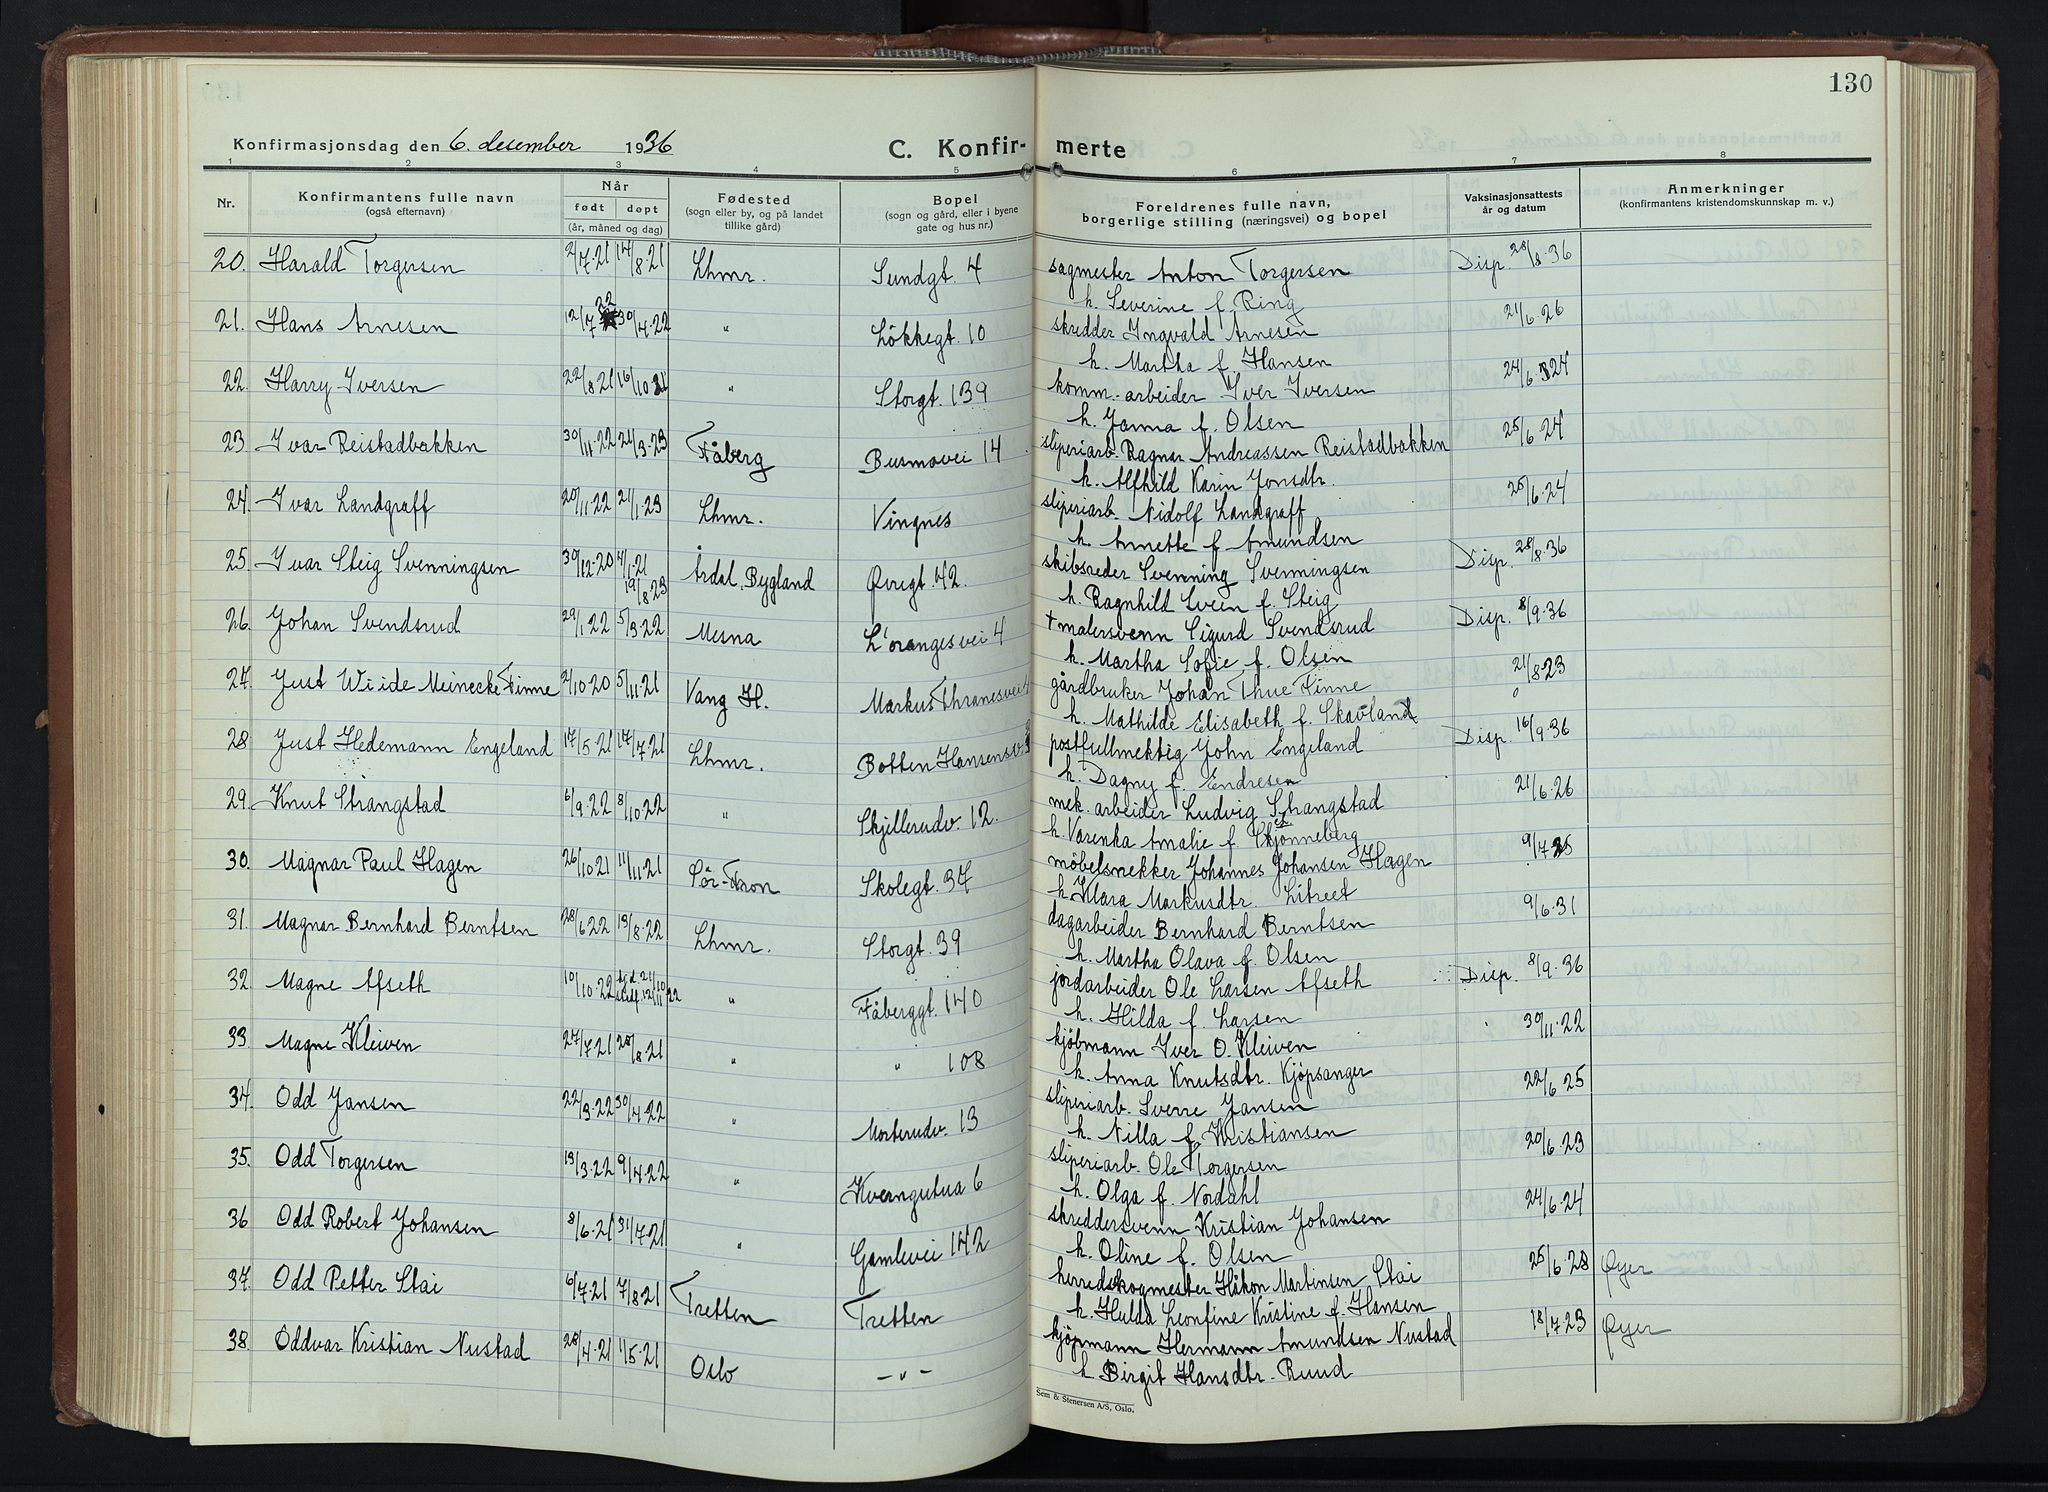 130
Konfirmasjonsdag den 6. desember 1936
C. Konfir- merte
1 2 3 4 5 6 7 8
Nr.
Konfirmantens fulle navn
(også efternavn)
Når
født døpt
(år, måned og dag)
Fødested
(sogn eller by, og på landet
tillike gård)
Bopel
(sogn og gård, eller i byene
gate og hus nr.)
Foreldrenes fulle navn,
borgerlige stilling (næringsvei) og bopel
Vaksinasjonsattests
år og datum
Anmerkninger
(konfirmantens kristendomskunnskap m. v.)
20. Harald Torgersen 2/7-21 14/8-21 Lhmr. Sundgt. 4 sagmester Anton Torgersen Disp. 28/8-36
h. Severine f. Ring
21. Hans Arnesen 12/7 22 30/4-22 " Løkkegt. 10 skredder Ingvald Arnesen 21/6-26
h. Martha f. Hansen
22. Harry Iversen 22/8-21 16/10-21 " Storgt. 139 komm.-arbeider Iver Iversen 24/6-24
h. Janna f. Olsen
23. Ivar Reistadbakken 30/11-22 21/3-23 Fåberg Busmovei 14 sliperiarb. Ragnar Andreassen Reistadbakken 25/6-24
h. Alfhild Karin Jonsdtr.
24. Ivar Landgraff 20/11-22 21/1-23 Lhmr. Vingnes sliperiarb. Nidolf Landgraff 25/6-24
h. Annette f. Amundsen
25. Ivar Steig Svenningsen 30/12-20 4/1-21 19/8-23 Årdal, Bygland Øvregt. 42. skibsreder Svenning Svenningsen Disp. 28/8-36
h. Ragnhild Sveen f. Steig
26. Johan Svendsrud 29/1-22 5/3-22 Mesna L'orangesvei 4 + malersvenn Sigurd Svendsrud Disp. 8/9-36
h. Martha Sofie f. Olsen
27. Just Wiide Meinecke Finne 2/10-20 5/11-21 Vang H. Markus Thranesvei gårdbruker Johan Thue Finne 21/8-23
h. Mathilde Elisabeth f. Skavland
28 Just Hedemann Engeland 17/5-21 17/7-21 Lhmr. Botten Hansensv. 3 postfullmektig John Engeland Disp. 16/9-36
h. Dagny f. Endresen
29. Knut Strangstad 6/9-22 8/10-22 " Skjellerudv. 12. mek. arbeider Ludvig Strangstad 21/6-26
h. Varenka Amalie f. Skjønneberg
30. Magnar Paul Hagen 26/10-21 11/11-21 Sør-Fron Skolegt. 37 møbelsnekker Johannes Johansen Hagen 9/7-25
h. Klara Markusdtr. Litreet
31. Magnar Bernhard Berntsen 28/6-22 13/8-22 Lhmr. Storgt. 39 dagarbeider Bernhard Berntsen 9/6-31
h. Martha Olava f. Olsen
32. Magne Afseth 10/10-22 hj.d. 21/10 stadf. 12/11 22 " Fåberggt. 140 jordarbeider Ole Larsen Afseth Disp. 8/9-36
h. Hilda f. Larsen
33. Magne Kleiven 27/7-21 28/8-21 " " 108 kjøbmann Iver O. Kleiven 30/11-22
h. Anna Knutsdtr. Kjøpsanger
34. Odd Jansen 22/3-22 30/4-22 " Morterudv. 13 sliperiarb. Sverre Jansen 22/6-25
h. Nilla f. Kristiansen
35. Odd Torgersen 13/3-22 9/4-22 " Kverngutua 6 sliperiarb. Ole Torgersen 20/6-23
h. Olga f. Nordahl
36 Odd Robert Johansen 8/6-21 31/7-21 " Gamlevei 142 skreddersvenn Kristian Johansen 24/6-24
h. Oline f. Olsen
37. Odd Petter Stai 6/7-21 7/8-21 Tretten Tretten herredskogmester Håkon Martinsen Stai 25/6-28 Øyer
h. Hulda Leonfine Kristine f. Hansen
38. Oddvar Kristian Nustad 28/4-21 1/5-21 Oslo -"- kjøpmann Hermann Amundsen Nustad 18/7-23 Øyer
h. Birgit Hansdtr. Ruud
Sem & Stenersen A/S, Oslo.